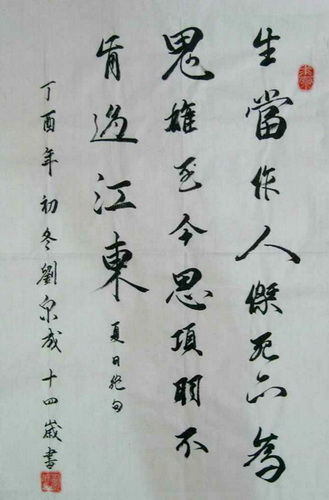 生當作人傑死亦為
鬼雄至今思項羽不
肯過江東
夏日絕句
丁酉年初冬劉泉成十四歲書